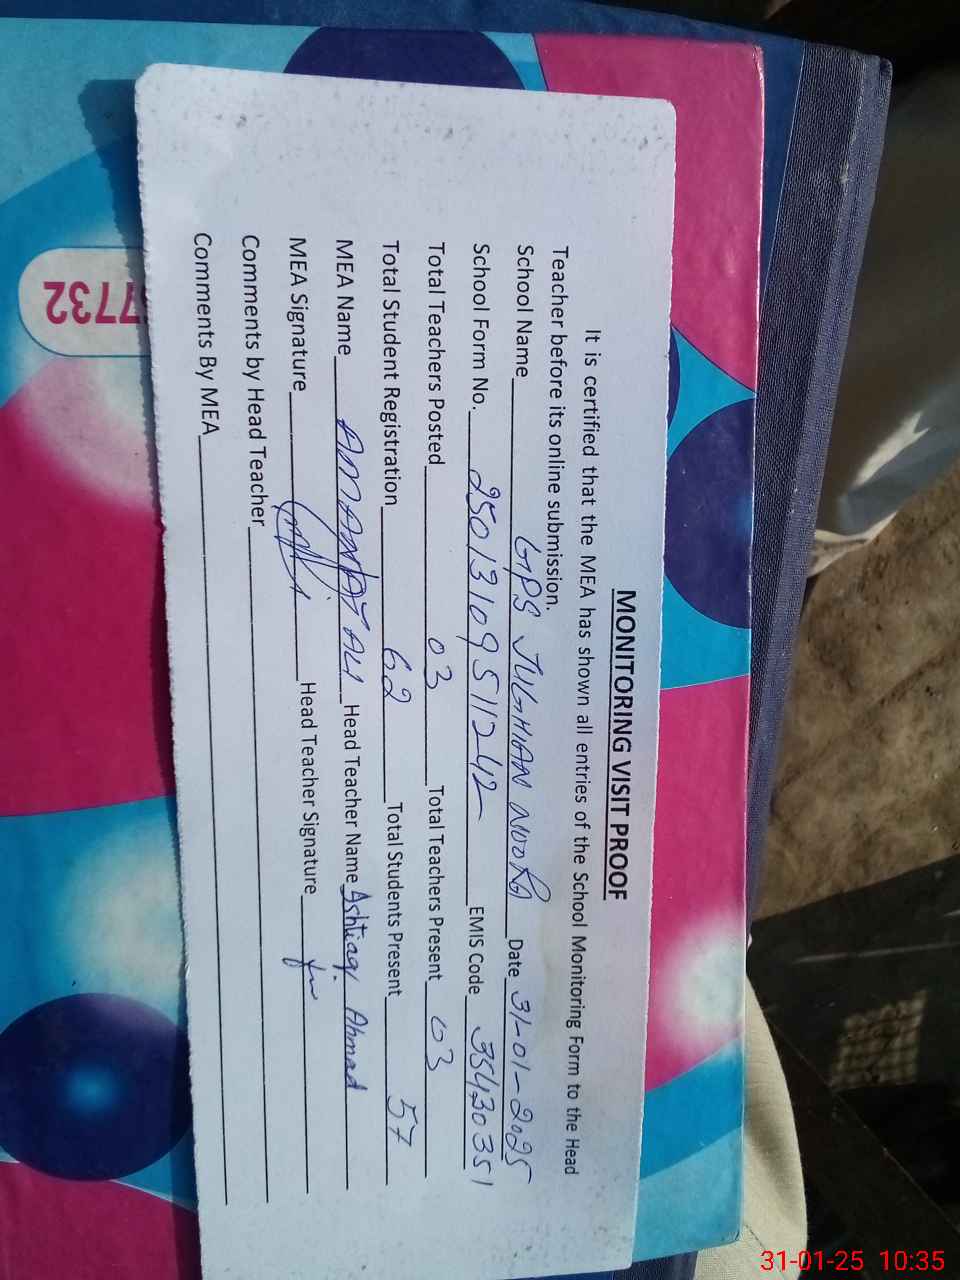 MONITORING VISIT PROOF
It is certified that the MEA has shown all entries of the School Monitoring Form to the Head
Teacher before its online submission.
School Name GPS JUGHIAN NOORA Date 31-01-2025
School Form No. 25013109511242 EMIS Code 35430351
Total Teachers Posted 03 Total Teachers Present 03
Total Student Registration 62 Total Students Present 57
MEA Name AMANAT ALI Head Teacher Name Ashtiaq Ahmad
MEA Signature Head Teacher Signature
Comments by Head Teacher
Comments By MEA
7732
31-01-25 10:35